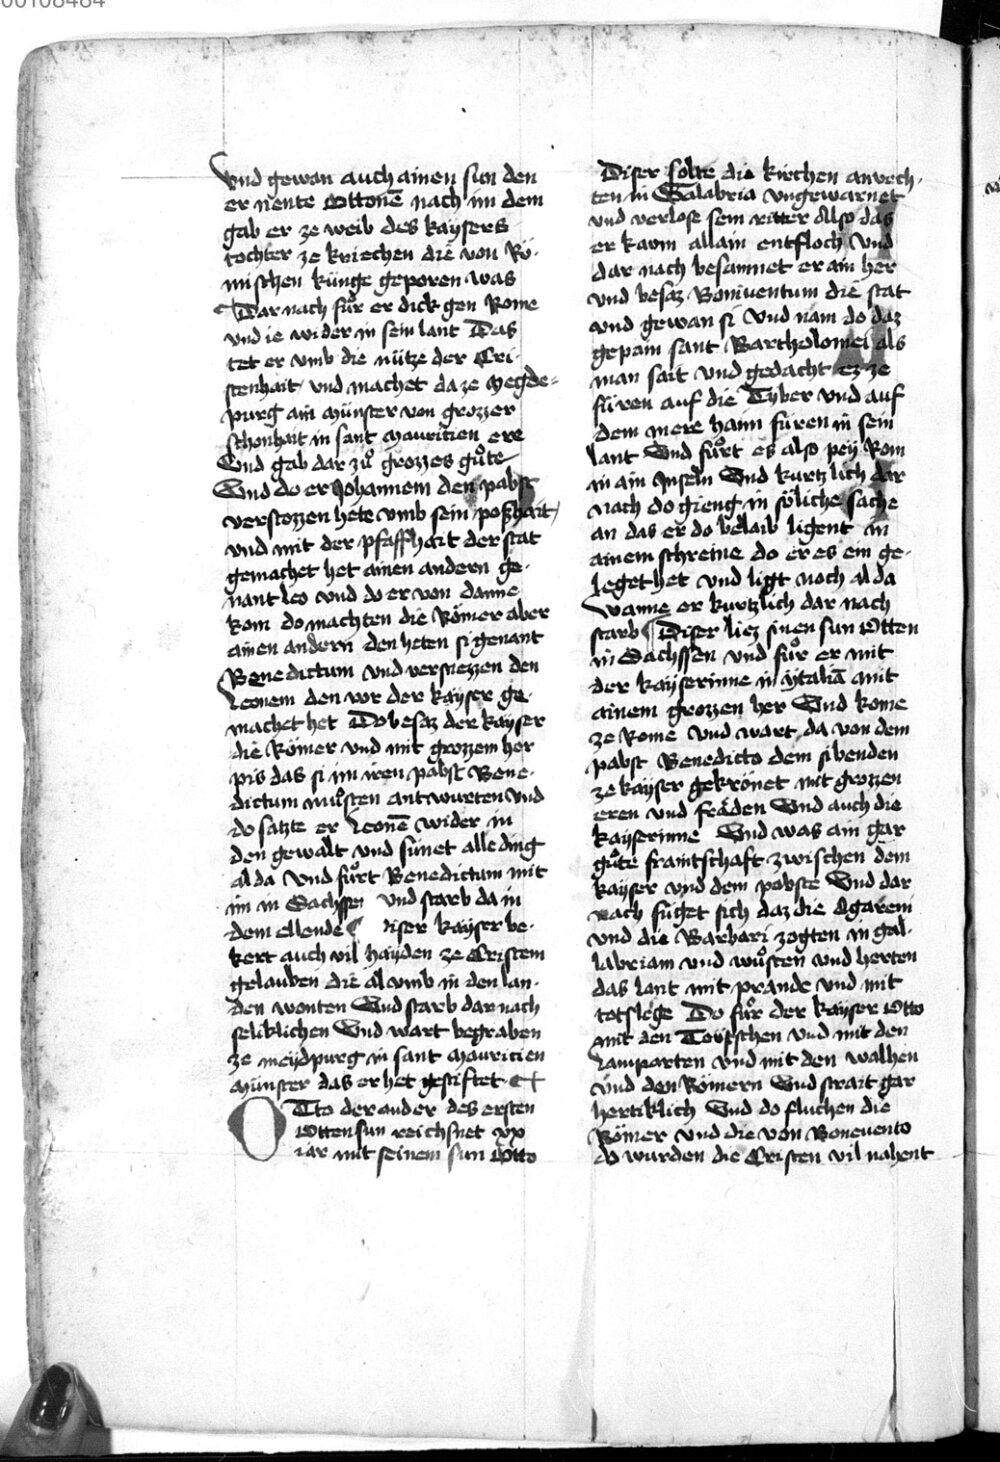 00108484
Und gewan auch ainen sun den
er nente Ottonē nach im dem
gab er ze weib des kaysers
tochter ze kriechen die von Rö-
mischen künge geporen was
¶ Dar nach fůr er dick gen Rome
und ie wider in sein lant Das
tet er umb die nütze der Cri-
stenhait und machet da ze Megde-
purg ain münster von grozzer
schonhait in sant Mauricien ere
Und gab dar zů grozzes gůte
Und do er Johannem den pabst
verstozzen hete umb sein poßhait
und mit der pfaffhait der stat
gemachet het ainen andern ge-
nant Leo und do er von danne
kom do machten die Römer aber
ainen andern den heten si genant
Benedictum und verstiezzen den
Leonem den vor der kayser ge-
machet het Do besaz der kayser
die Römer und mit grozzem her
pis das si im iren pabst Bene-
dictum můsten antwurten und
do satzte er Leonē wider in
den gewalt und sůnet alle ding
al da Und fůrt Benedictum mit
im in Sachssen und starb da in
dem ellende ¶ diser kayser be-
kert auch vil hayden ze Cristem
gelauben die al umb in den lan-
den wonten Und starb dar nach
seliklichen Und wart begraben
ze meydpurg in sant Mauricien
münster das er het gestiftet
OTto der ander des ersten
Otten sun reichsnet xx
iar mit seinem sun Otto
Diser solte die kirchen anvech-
ten in Calabria ungewarnet
und verlose sein ritter Also das
er kaum allain entfloch Und
dar nach besamnet er ain her
und besaz Boniventum die stat
und gewan si Und nam do daz
gepain sant Bartholomei als
man sait und gedacht ez ze
füren auf die Tyber und auf
dem mere haim füren in sein
lant Und fůrt es also pey Rom
in ain Inseln Und kurtzlich dar
nach do gieng in söliche sache
an das er do belaib ligent in
ainem schreine do er es ein ge-
leget het und ligt noch al da
wanne er kurtzlich dar nach
starb ¶ Diser liez sinen sun Otten
in Sachssen und fůr er mit
der kayserinne in ytaliā mit
ainem grozzen her Und kome
ze Rome Und wart da von dem
pabst Benedicto dem sibenden
ze kayser gekrönet mit grozzen
eren und fräden Und auch die
kayserinne Und was ain gar
gůte fraintschaft zwischen dem
kayser und dem pabste Und dar
nach füget sich daz die Agareni
und die Barbari zogten in gal-
labriam und wůsten und herten
das lant mit prande und mit
totslege Do fůr der kayser Otto
mit den Teutschen und mit den
Lamparten und mit den walhen
und den Römern Und strait gar
hertiklich Und do fluchen die
Römer und die von Bonevento
do wurden die Cristen vil nahent